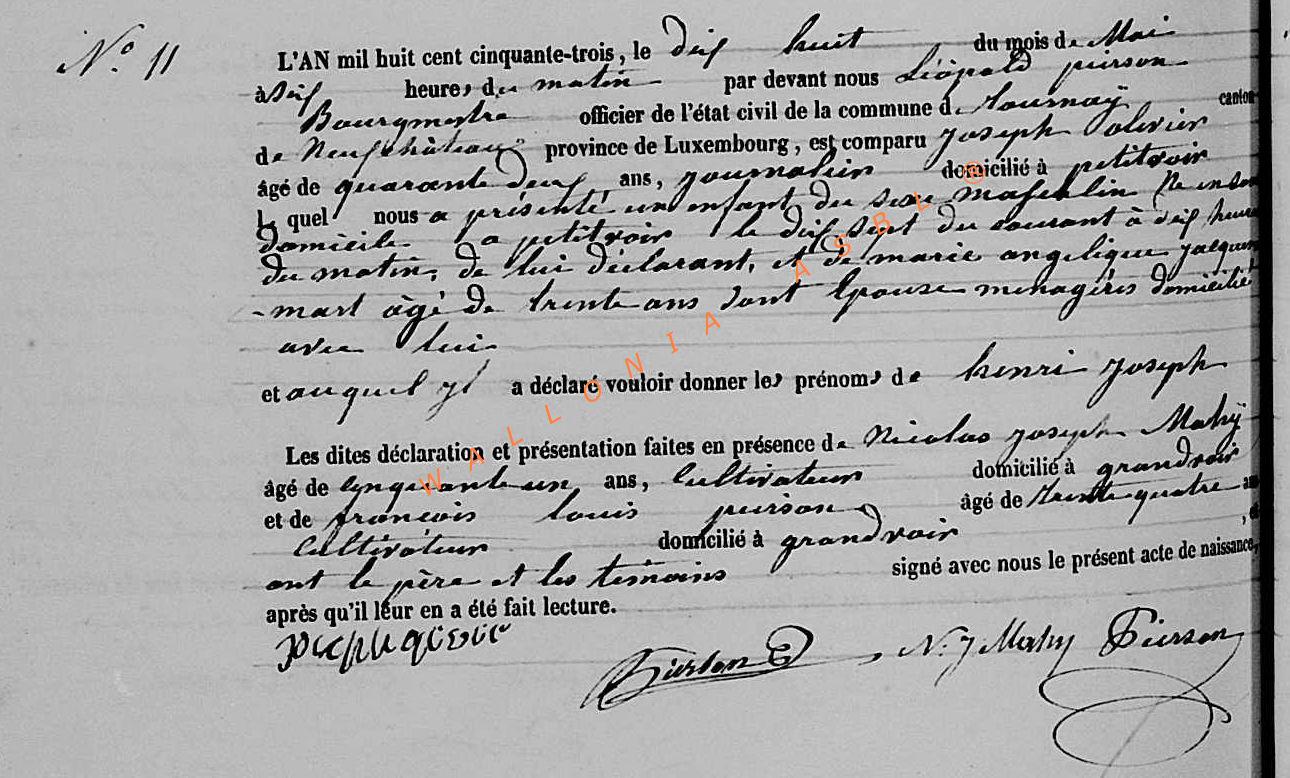 N.º 11
L'AN mil huit cent cinquante-trois, le dix huit du mois de Mai
à dix heures du matin par devant nous Léopold pierson
Bourgmestre officier de l'état civil de la commune de tournaÿ canton
de Neufchâteau province de Luxembourg, est comparu Joseph olivier
âgé de quarante deux ans, journalier domicilié à petitvoir
lequel nous a présenté un enfant du sexe masculin né en son
domicile a petitvoir le dix sept du courant à dix heures
du matin, de lui déclarant, et de marie angelique jacque
-mart âgé de trente ans sont Epouse menagère domicilié
avec lui
et auquel il a déclaré vouloir donner les prénoms de henri joseph
Les dites déclaration et présentation faites en présence de Nicolas joseph Mahÿ
âgé de cinquante un ans, Cultivateur domicilié à grandvoir
et de françois louis pierson âgé de trente quatre ans
Cultivateur domicilié à grandvoir , et
ont le père et les témoins signé avec nous le présent acte de naissance,
après qu'il leur en a été fait lecture.
Pierson N. J Mahy Pierson
WALLONIA ASBL ®